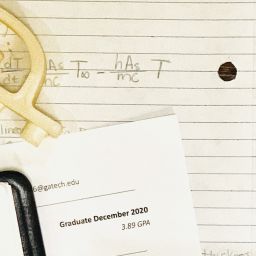 dT
dt
As
mC
T∞ - hAs
mC
T
linea
6@gatech.edu
Graduate December 2020
3.89 GPA
thickness